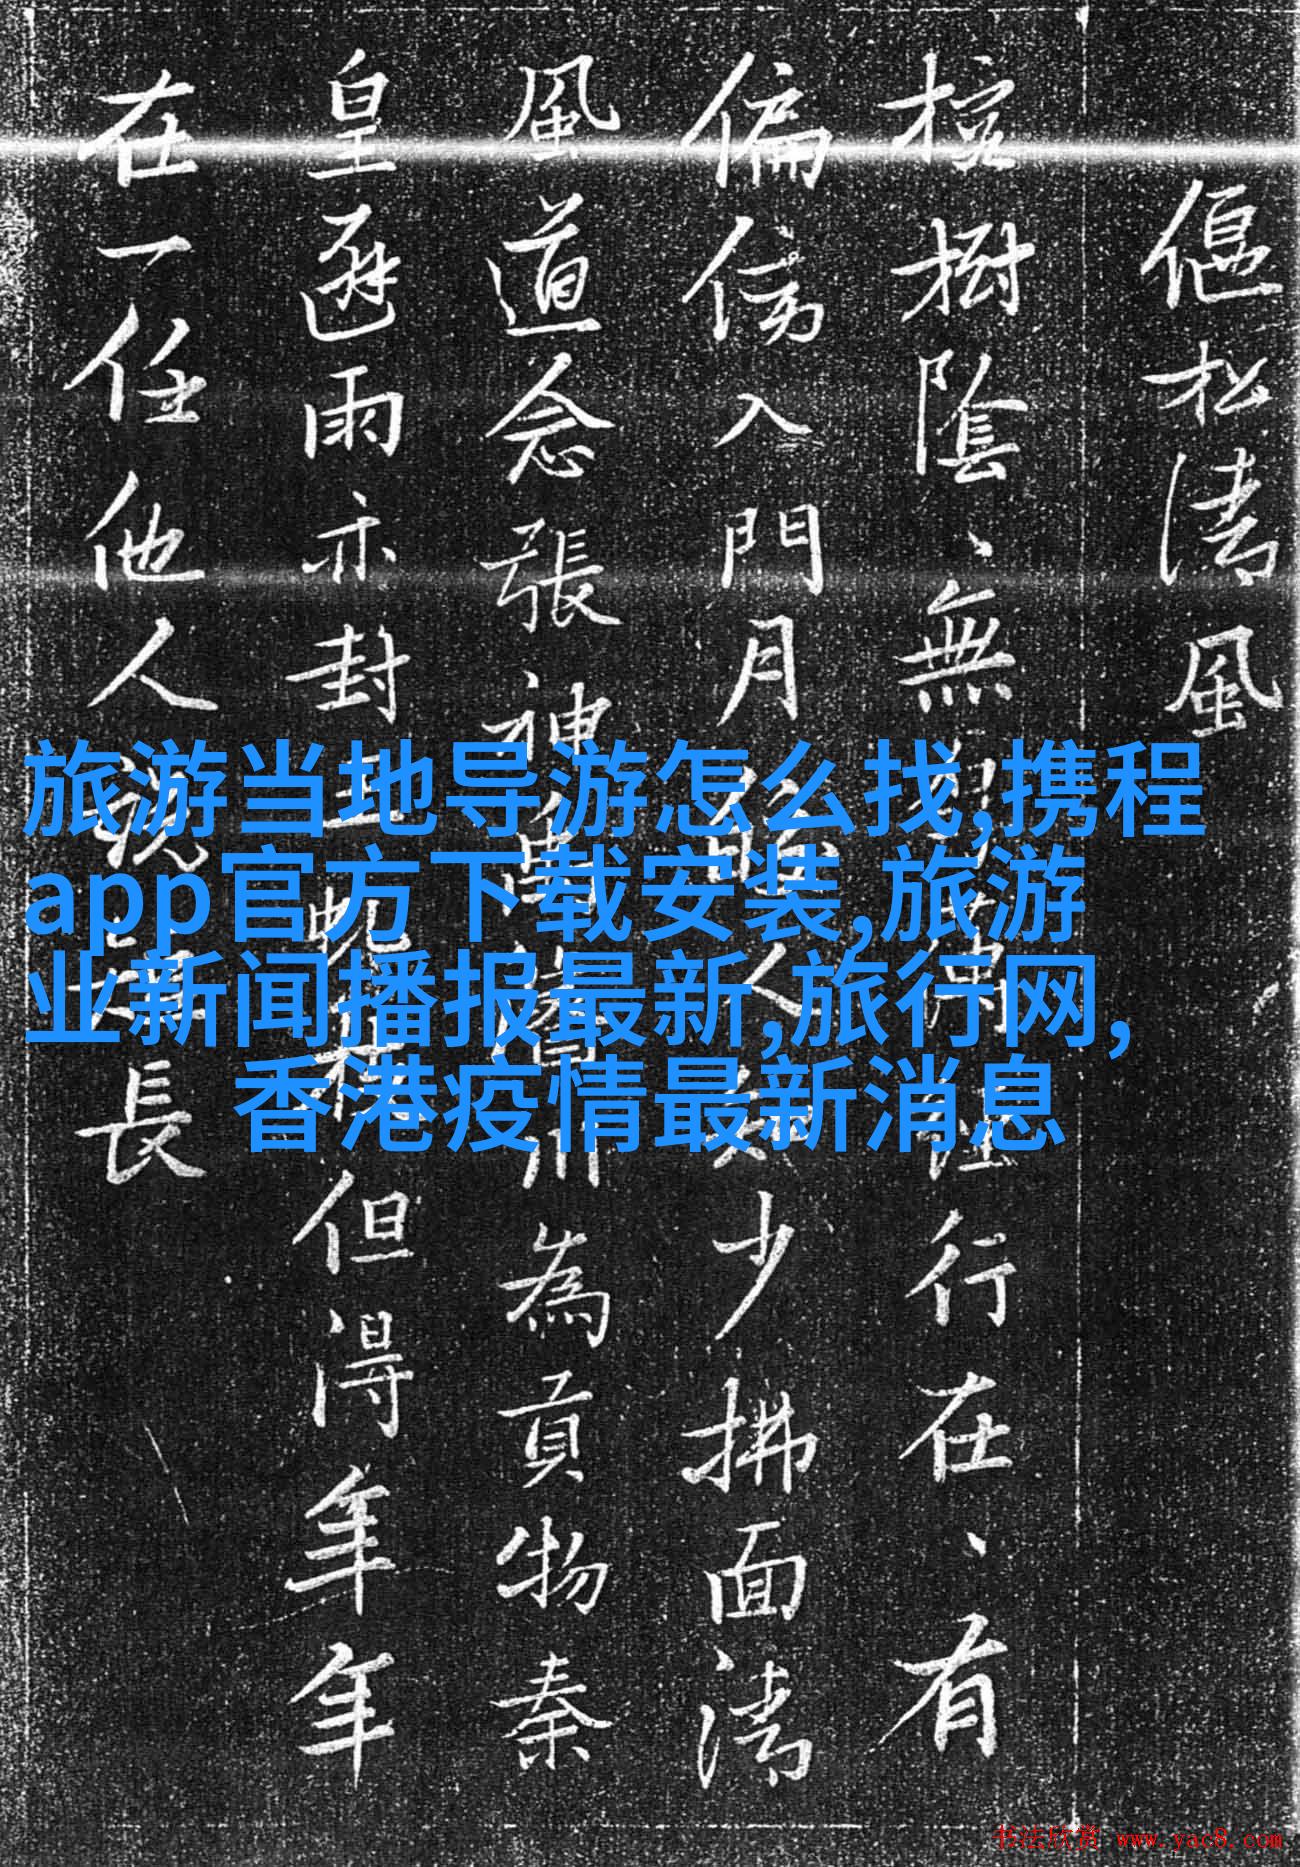 偃松清風
樹陰、無
行在、有
偏傍入門月
人
少拂面清
風道念張神萬
為貢物秦
皇避雨亦封
但得年年
在一任他人說
長
旅游当地导游怎么找,携程
app官方下载安装,旅游
业新闻播报最新,旅行网,
香港疫情最新消息
书法欣赏 www.yac8.com